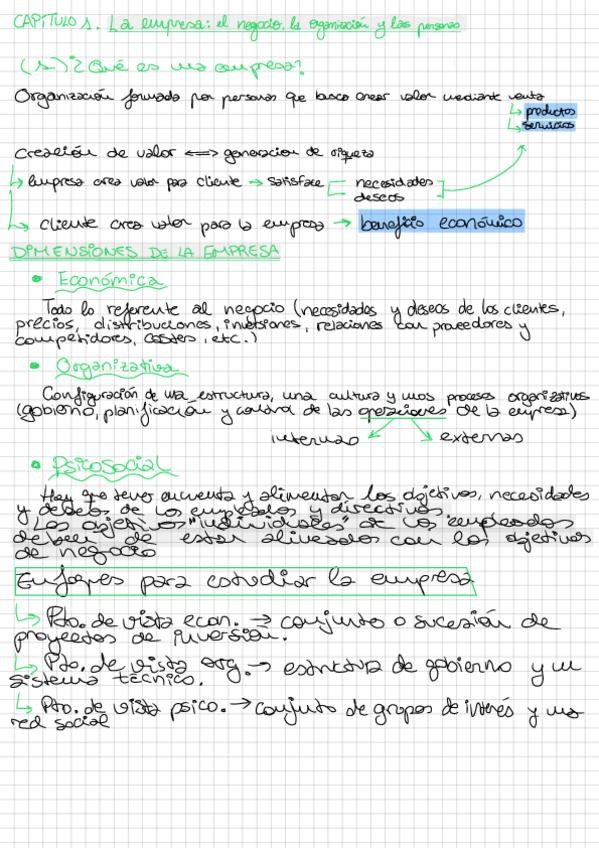 CAPÍTULO 1. La empresa: el negocio, la organización y las personas
(1) ¿Qué es una empresa?
Organización formada por personas que busca crear valor mediante venta
↳ productos
↳ servicios
Creación de valor ⟺ generacion de riqueza
↳ Empresa crea valor para cliente → satisface necesidades
deseos
↳ cliente crea valor para la empresa → beneficio económico
DIMENSIONES DE LA EMPRESA
• Económica
Todo lo referente al negocio (necesidades y deseos de los clientes,
precios, distribuciones, inversiones, relaciones con proveedores y
competidores, costes, etc.)
• Organizativa
Configuración de una estructura, una cultura y unos procesos organizativos
(gobierno, planificación y control de las operaciones de la empresa)
internas externas
• Psicosocial
Hay que tener en cuenta y alimentar los objetivos, necesidades
y deseos de los empleados y directivos.
Los objetivos "individuales" de los empleados
deben de estar alineados con los objetivos
de negocio
Enfoques para estudiar la empresa
↳ Pto. de vista econ. → conjunto o sucesión de
proyectos de inversión.
↳ Pto. de vista org. → estructura de gobierno y un
sistema técnico.
↳ Pto. de vista psico. → conjunto de grupos de interés y una
red social